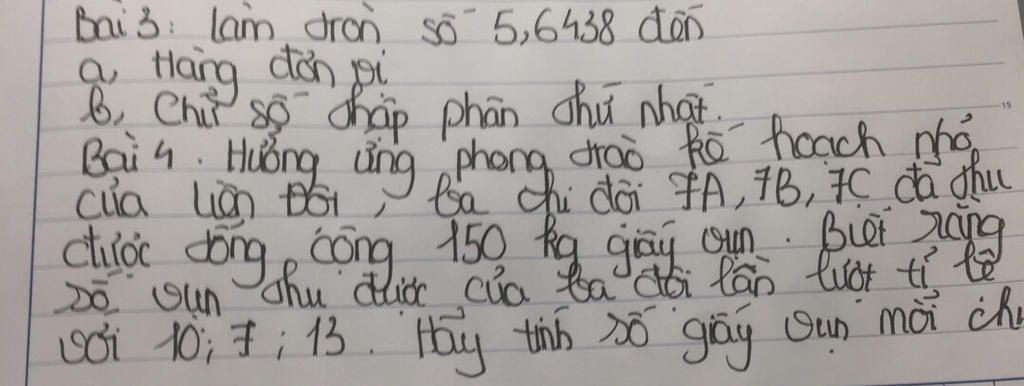 Bài 3: Làm tròn số 5,6438 đến
a, Hàng đơn vị
b, Chữ số thập phân thứ nhất.
Bài 4. Hưởng ứng phong trào kế hoạch nhỏ
của Liên Đội, ba chi đội 7A, 7B, 7C đã thu
được tổng cộng 150 kg giấy vụn. Biết rằng
số vụn thu được của ba đội lần lượt tỉ lệ
với 10; 7; 13. Hãy tính số giấy vụn mỗi chi
15